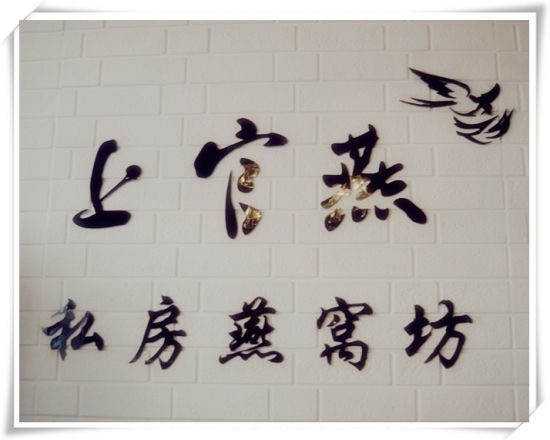 上官燕
私房燕窩坊